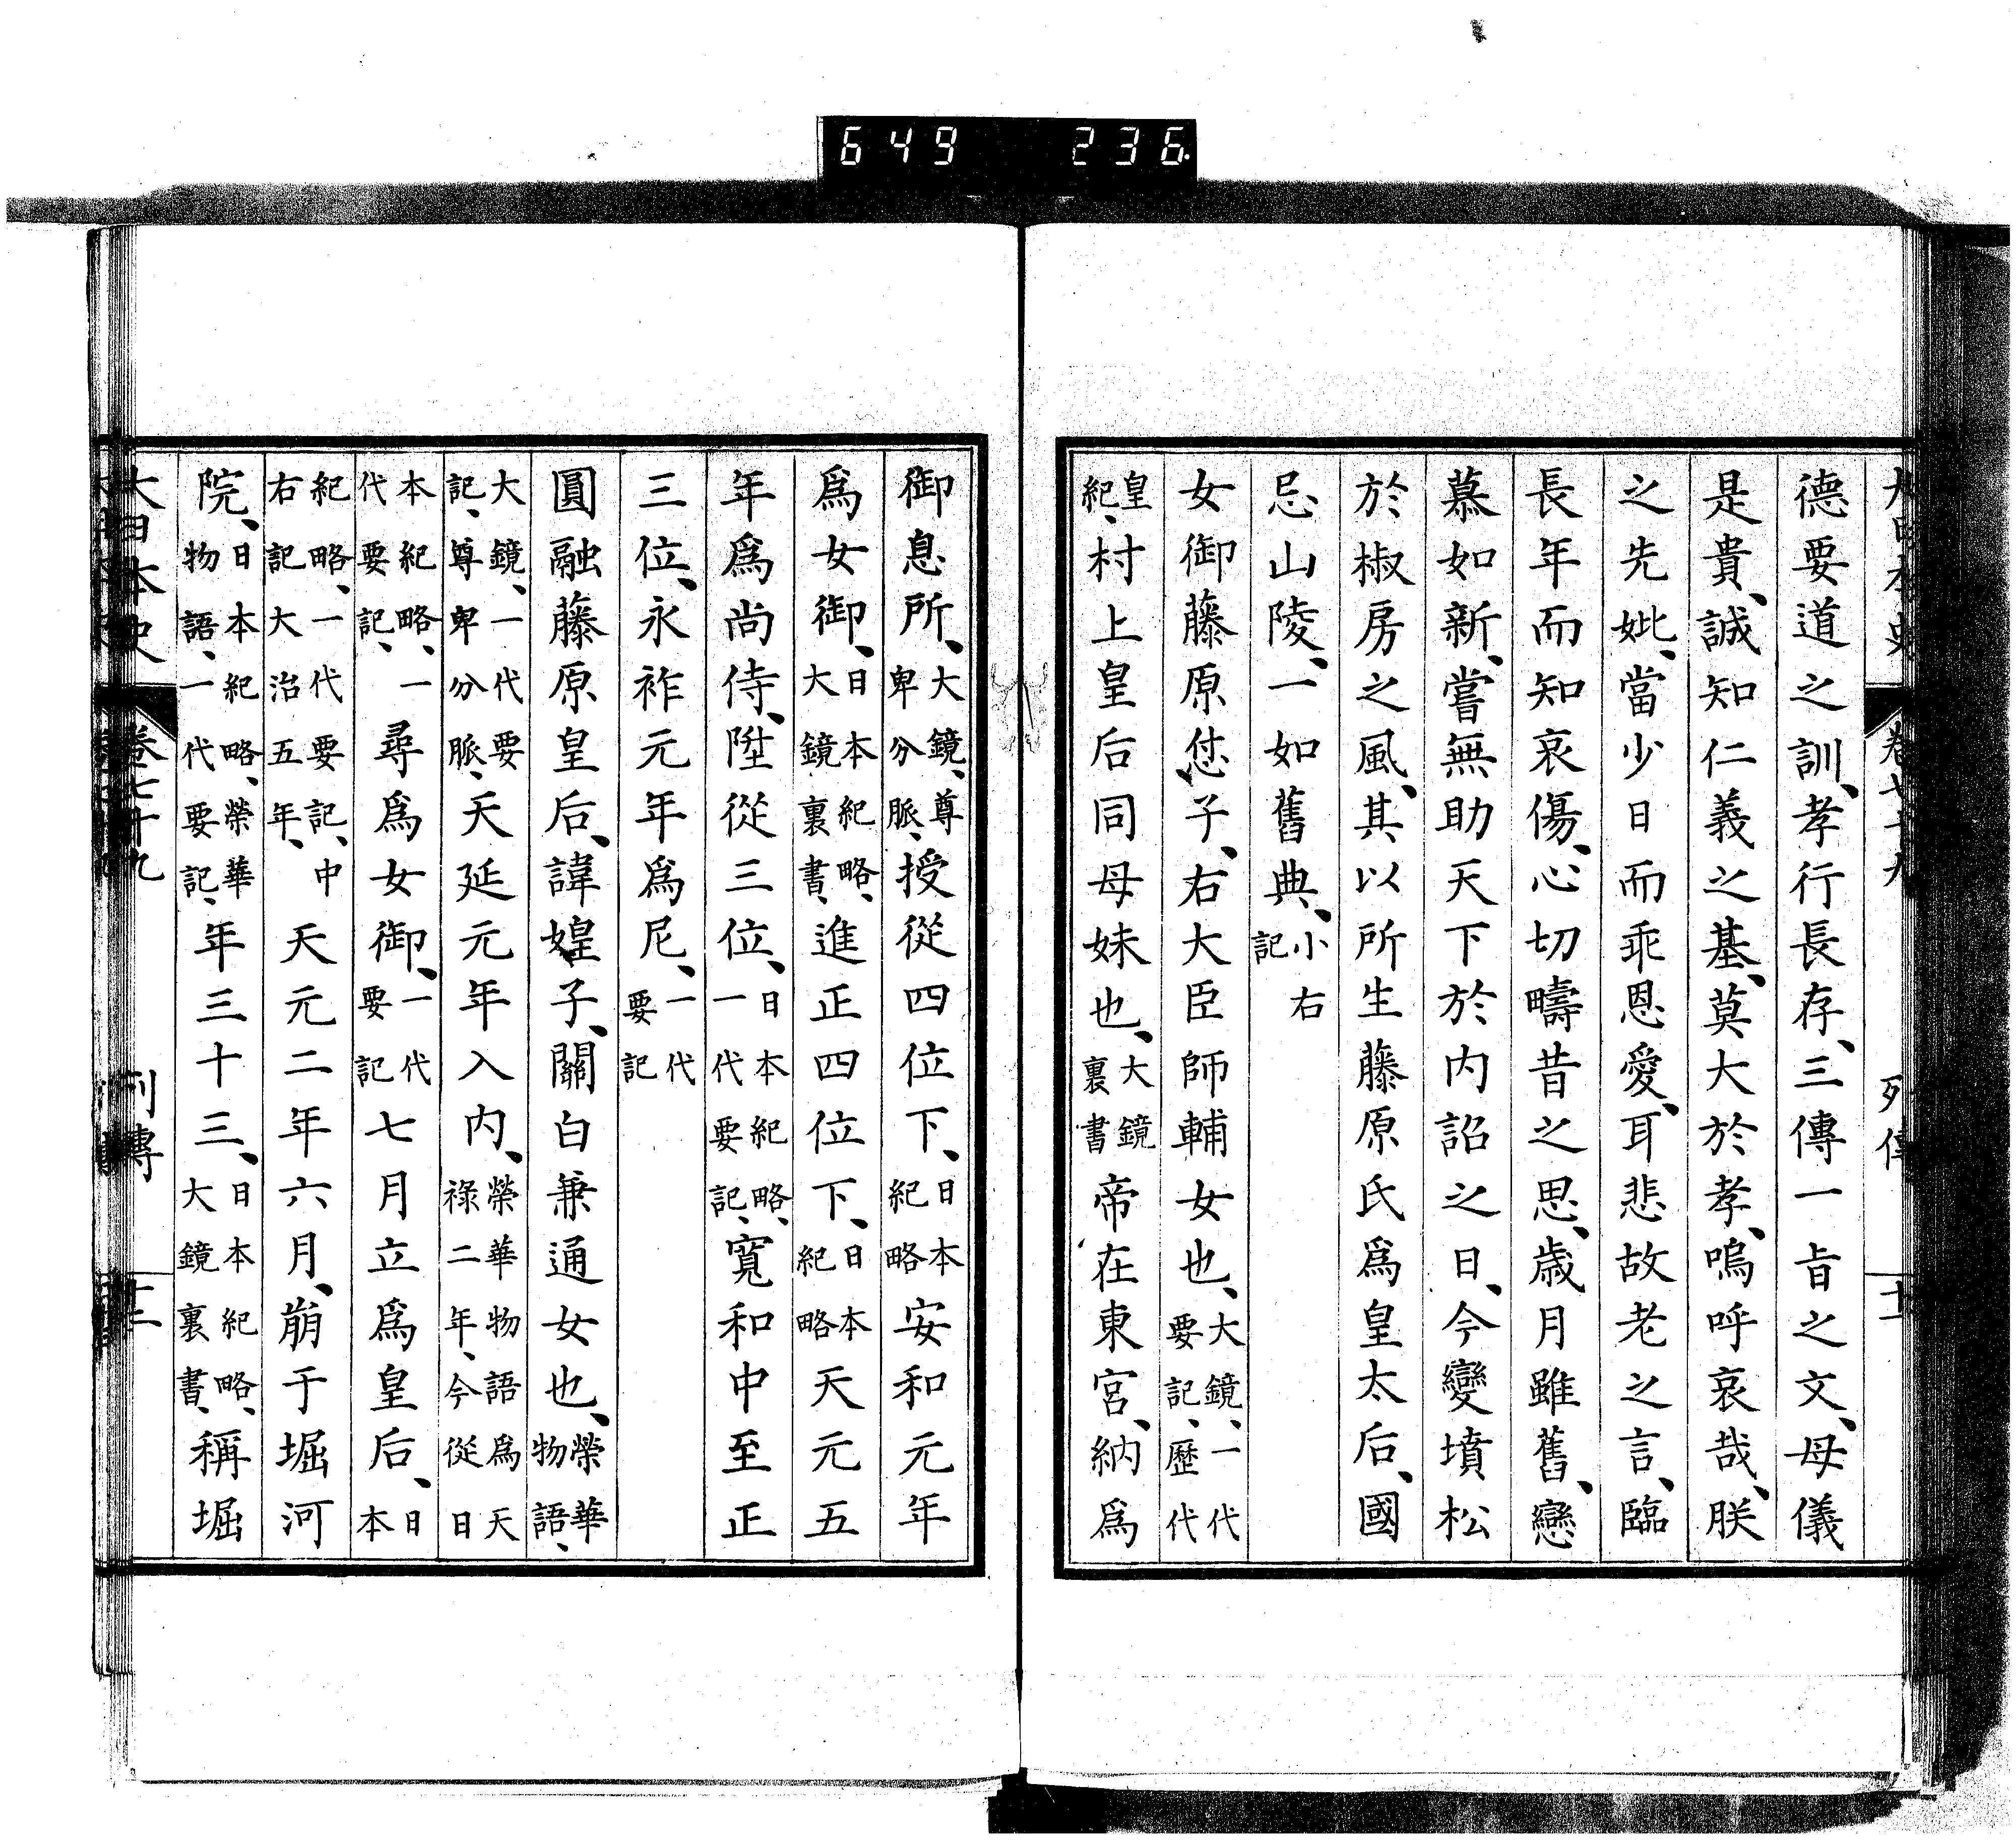 649 236
大日本史 卷七十九 列傳 十一
德要道之訓、孝行長存、三傳一㫖之文、母儀
是貴、誠知仁義之基、莫大於孝、嗚呼哀哉、朕
之先妣、當少日而乖恩愛、耳悲故老之言、臨
長年而知哀傷、心切疇昔之思、歲月雖舊、戀
慕如新、嘗無助天下於内詔之日、今變墳松
於椒房之風、其以所生藤原氏爲皇太后、國
忌山陵、一如舊典、小右記
女御藤原怤子、右大臣師輔女也、大鏡、一代要記、歷代
皇紀、村上皇后同母妹也、大鏡裏書帝在東宮、納爲
御息所、大鏡、尊卑分脈、授從四位下、日本紀略安和元年
爲女御、日本紀略、大鏡裏書、進正四位下、日本紀略天元五
年爲尚侍、陞從三位、日本紀略、一代要記、寬和中至正
三位、永祚元年爲尼、一代要記
圓融藤原皇后、諱媓子、關白兼通女也、榮華物語、
大鏡、一代要記、尊卑分脈、天延元年入内、榮華物語爲天祿二年、今從日
本紀略、一代要記、尋爲女御、一代要記七月立爲皇后、日本
紀略、一代要記、中右記大治五年、天元二年六月、崩于堀河
院、日本紀略、榮華物語、一代要記、年三十三、日本紀略、大鏡裏書、稱堀
大日本史 卷七十九 列傳 十二